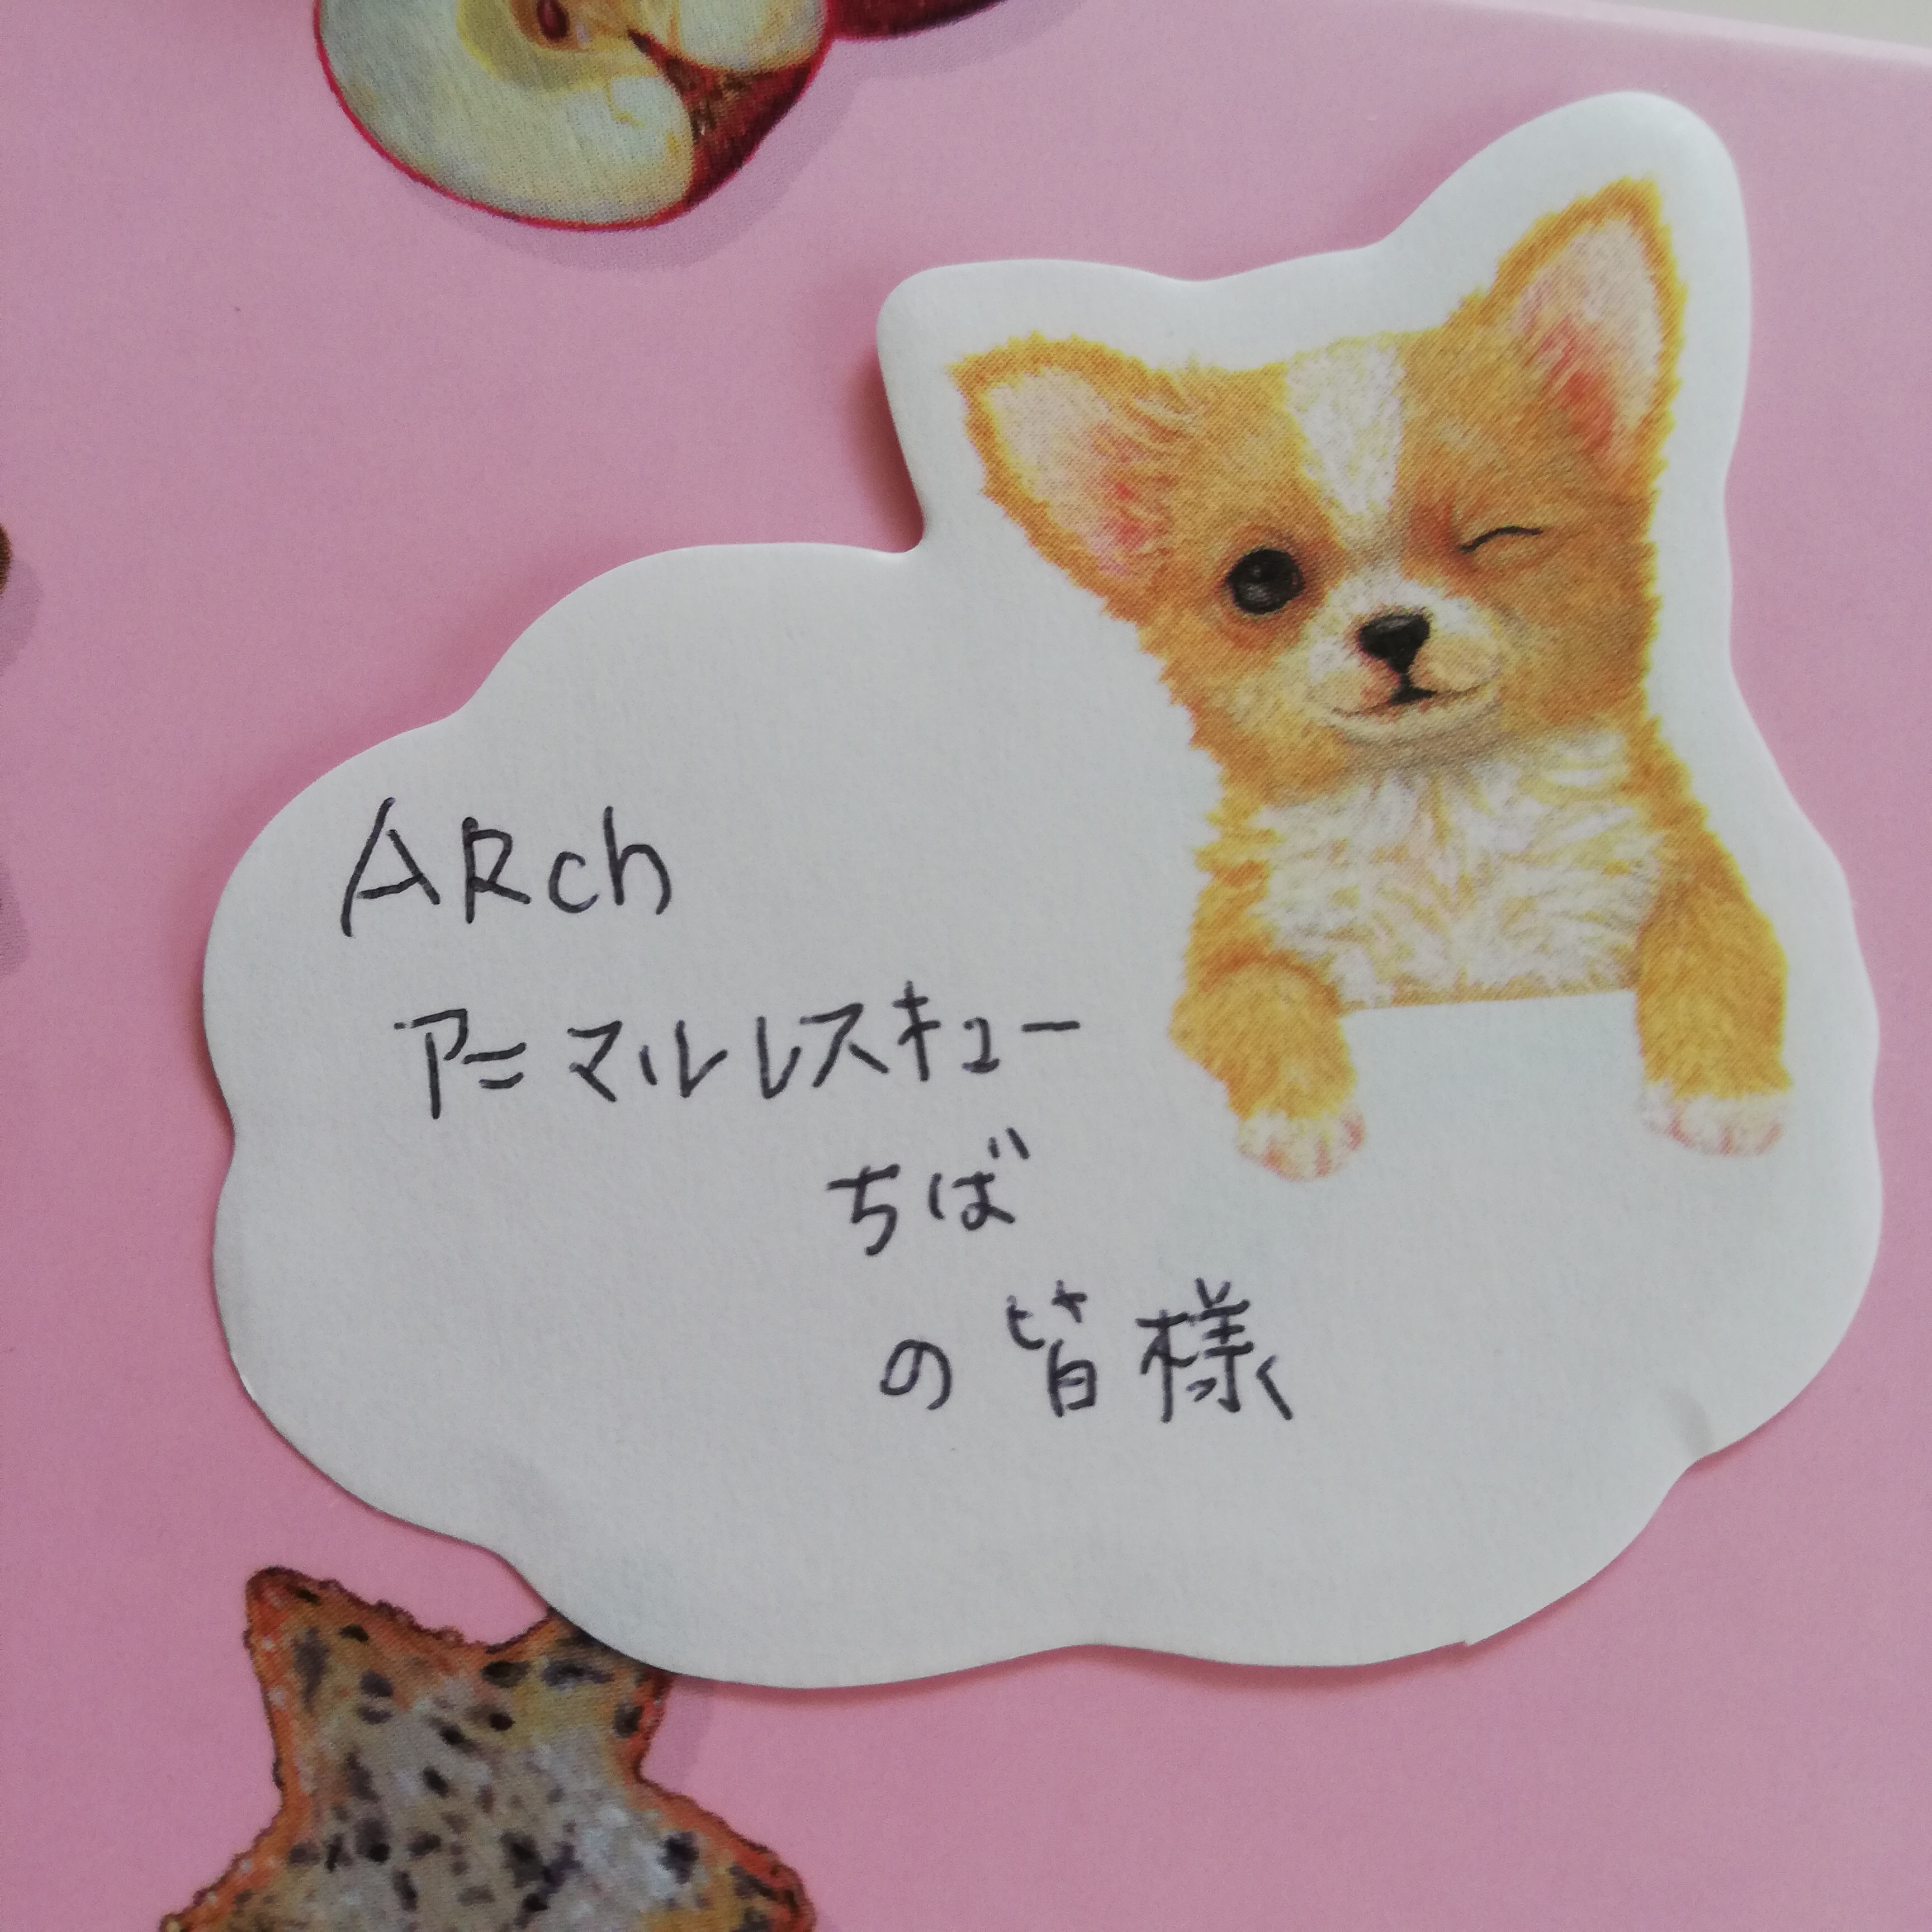 ARch
アニマルレスキュー
ちば
の皆様